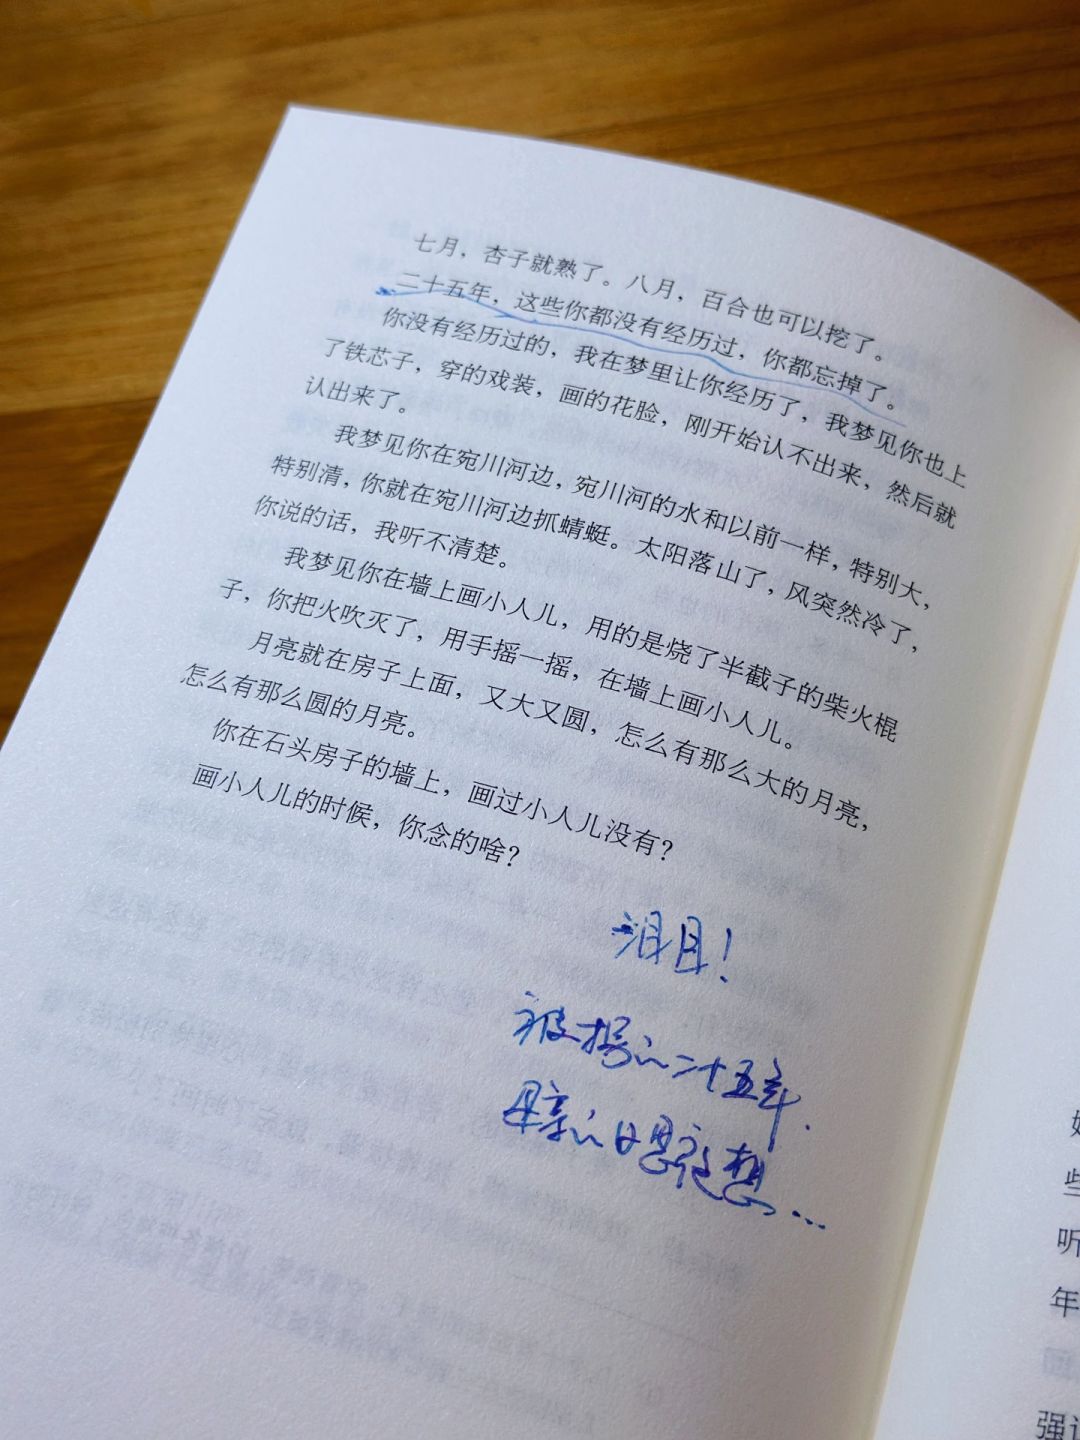 七月，杏子就熟了。八月，百合也可以挖了。
二十五年，这些你都没有经历过，你都忘掉了。
你没有经历过的，我在梦里让你经历了，我梦见你也上
了铁芯子，穿的戏装，画的花脸，刚开始认不出来，然后就
认出来了。
我梦见你在宛川河边，宛川河的水和以前一样，特别大，
特别清，你就在宛川河边抓蜻蜓。太阳落山了，风突然冷了，
你说的话，我听不清楚。
我梦见你在墙上画小人儿，用的是烧了半截子的柴火棍
子，你把火吹灭了，用手摇一摇，在墙上画小人儿。
月亮就在房子上面，又大又圆，怎么有那么大的月亮，
怎么有那么圆的月亮。
你在石头房子的墙上，画过小人儿没有？
画小人儿的时候，你念的啥？
泪目！
被拐的二十五年.
母亲的日思夜想...
些
听
年
强